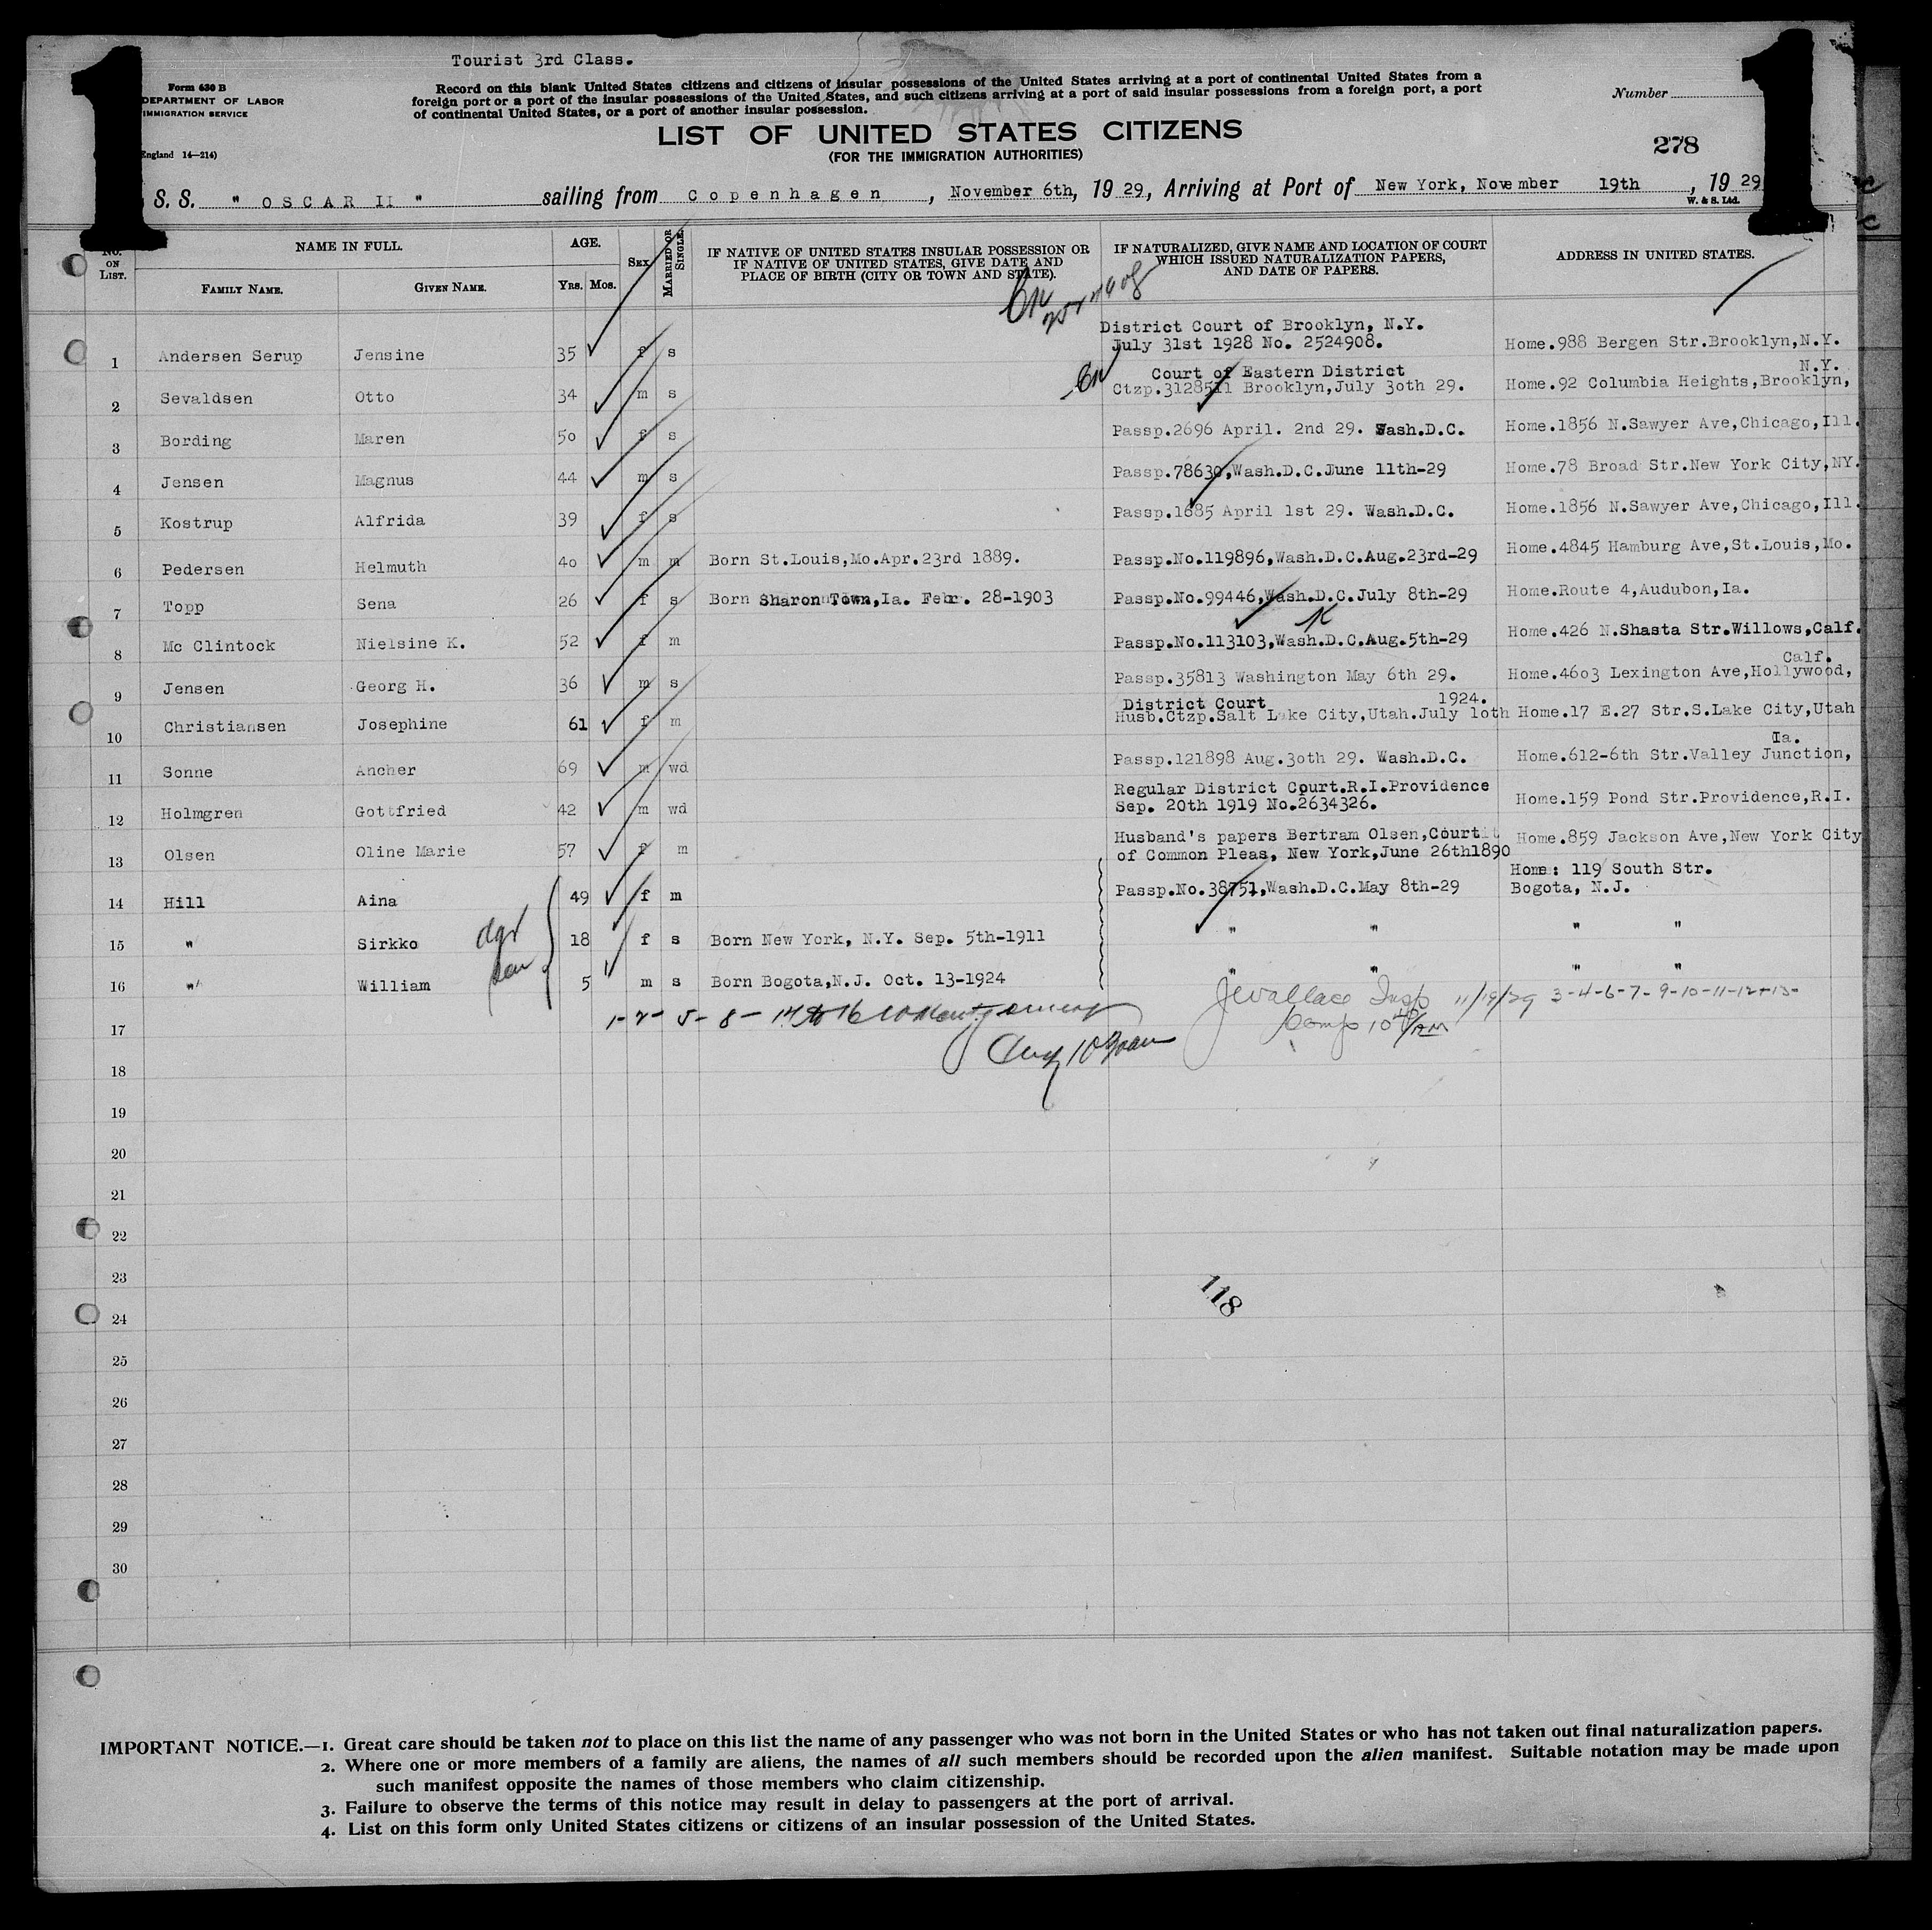 Tourist 3rd Class.
1
1
Form 630 B
DEPARTMENT OF LABOR
IMMIGRATION SERVICE
England 14—214)
Record on this blank United States citizens and citizens of insular possessions of the United States arriving at a port of continental United States from a
foreign port or a port of the insular possessions of the United States, and such citizens arriving at a port of said insular possessions from a foreign port, a port
of continental United States, or a port of another insular possession.
Number
LIST OF UNITED STATES CITIZENS
(FOR THE IMMIGRATION AUTHORITIES)
278
S. S. " OSCAR II " sailing from Copenhagen, November 6th, 19 29, Arriving at Port of New York, November 19th, 19 29
W. & S. Ltd.
No. ON LIST.
NAME IN FULL.
FAMILY NAME. GIVEN NAME.
AGE.
Yrs. Mos.
SEX
MARRIED OR SINGLE.
IF NATIVE OF UNITED STATES INSULAR POSSESSION OR
IF NATIVE OF UNITED STATES, GIVE DATE AND
PLACE OF BIRTH (CITY OR TOWN AND STATE).
IF NATURALIZED, GIVE NAME AND LOCATION OF COURT
WHICH ISSUED NATURALIZATION PAPERS,
AND DATE OF PAPERS.
ADDRESS IN UNITED STATES.
District Court of Brooklyn, N.Y.
1 Andersen Serup Jensine 35 f s July 31st 1928 No. 2524908. Home.988 Bergen Str.Brooklyn,N.Y.
Court of Eastern District N.Y.
2 Sevaldsen Otto 34 m s Ctzp.3128511 Brooklyn,July 30th 29. Home.92 Columbia Heights,Brooklyn,
3 Bording Maren 50 f s Passp.2696 April. 2nd 29. Wash.D.C. Home.1856 N.Sawyer Ave,Chicago,Ill.
4 Jensen Magnus 44 m s Passp.78630,Wash.D.C.June 11th-29 Home.78 Broad Str.New York City,NY.
5 Kostrup Alfrida 39 f s Passp.1685 April 1st 29. Wash.D.C. Home.1856 N.Sawyer Ave,Chicago,Ill.
6 Pedersen Helmuth 40 m m Born St.Louis,Mo.Apr.23rd 1889. Passp.No.119896,Wash.D.C.Aug.23rd-29 Home.4845 Hamburg Ave,St.Louis,Mo.
7 Topp Sena 26 f s Born Sharon Town,Ia. Febr. 28-1903 Passp.No.99446,Wash.D.C.July 8th-29 Home.Route 4,Audubon,Ia.
8 Mc Clintock Nielsine K. 52 f m Passp.No.113103,Wash.D.C.Aug.5th-29 Home.426 N.Shasta Str.Willows,Calf.
Calf.
9 Jensen Georg H. 36 m s Passp.35813 Washington May 6th 29. Home.4603 Lexington Ave,Hollywood,
District Court 1924.
10 Christiansen Josephine 61 f m Husb.Ctzp.Salt Lake City,Utah.July 10th Home.17 E.27 Str.S.Lake City,Utah
Ia.
11 Sonne Ancher 69 m wd Passp.121898 Aug.30th 29. Wash.D.C. Home.612-6th Str.Valley Junction,
Regular District Court.R.I.Providence
12 Holmgren Gottfried 42 m wd Sep. 20th 1919 No.2634326. Home.159 Pond Str.Providence,R.I.
Husband's papers Bertram Olsen,Court
13 Olsen Oline Marie 57 f m of Common Pleas, New York,June 26th1890 Home.859 Jackson Ave,New York City
Home: 119 South Str.
14 Hill Aina 49 f m Passp.No.38751,Wash.D.C.May 8th-29 Bogota, N.J.
15 " Sirkko 18 f s Born New York, N.Y. Sep. 5th-1911 " " " "
16 " William 5 m s Born Bogota,N.J. Oct. 13-1924 " " " "
JWallace Insp 11/19/29 3-4-6-7-9-10-11-12-13-
17
18
19
20
21
22
23
118
24
25
26
27
28
29
30
IMPORTANT NOTICE.—1. Great care should be taken not to place on this list the name of any passenger who was not born in the United States or who has not taken out final naturalization papers.
2. Where one or more members of a family are aliens, the names of all such members should be recorded upon the alien manifest. Suitable notation may be made upon
such manifest opposite the names of those members who claim citizenship.
3. Failure to observe the terms of this notice may result in delay to passengers at the port of arrival.
4. List on this form only United States citizens or citizens of an insular possession of the United States.